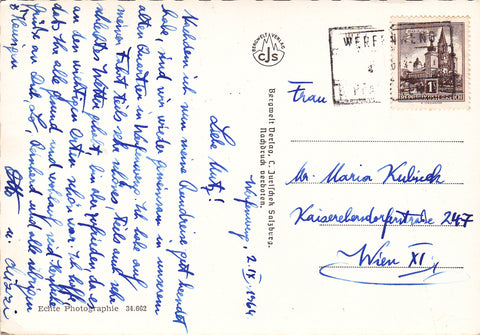 Werfenweng, 2.IX.1964
Liebe Mutz!
Nachdem ich nun meine Rundreise gut beendet
habe, sind wir wieder gemeinsam in unserem
alten Quartier in Werfenweng. Ich habe auf
meiner Fahrt teils sehr schönes, teils auch sehr
schlechtes Wetter gehabt, bin aber zufrieden, da es
an den wichtigsten Orten schön war. Ich hoffe,
daß Ihr alle gesund und wohlauf seid. Herzliche
Grüße an Dich, und alle übrigen
Otto u.
Bergwelt Verlag, C. Jurischek Salzburg.
Nachdruck verboten.
BERGWELT VERLAG
CJS
Echte Photographie 34.662
WERFENWENG
1
Frau
Mr. Maria Kubicek
Kaiserebersdorferstraße 247
Wien XI